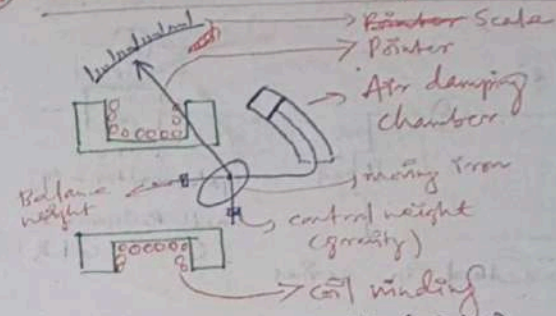 Scale
Pointer
Air damping
chamber
moving iron
Balance
weight
control weight
(gravity)
coil winding